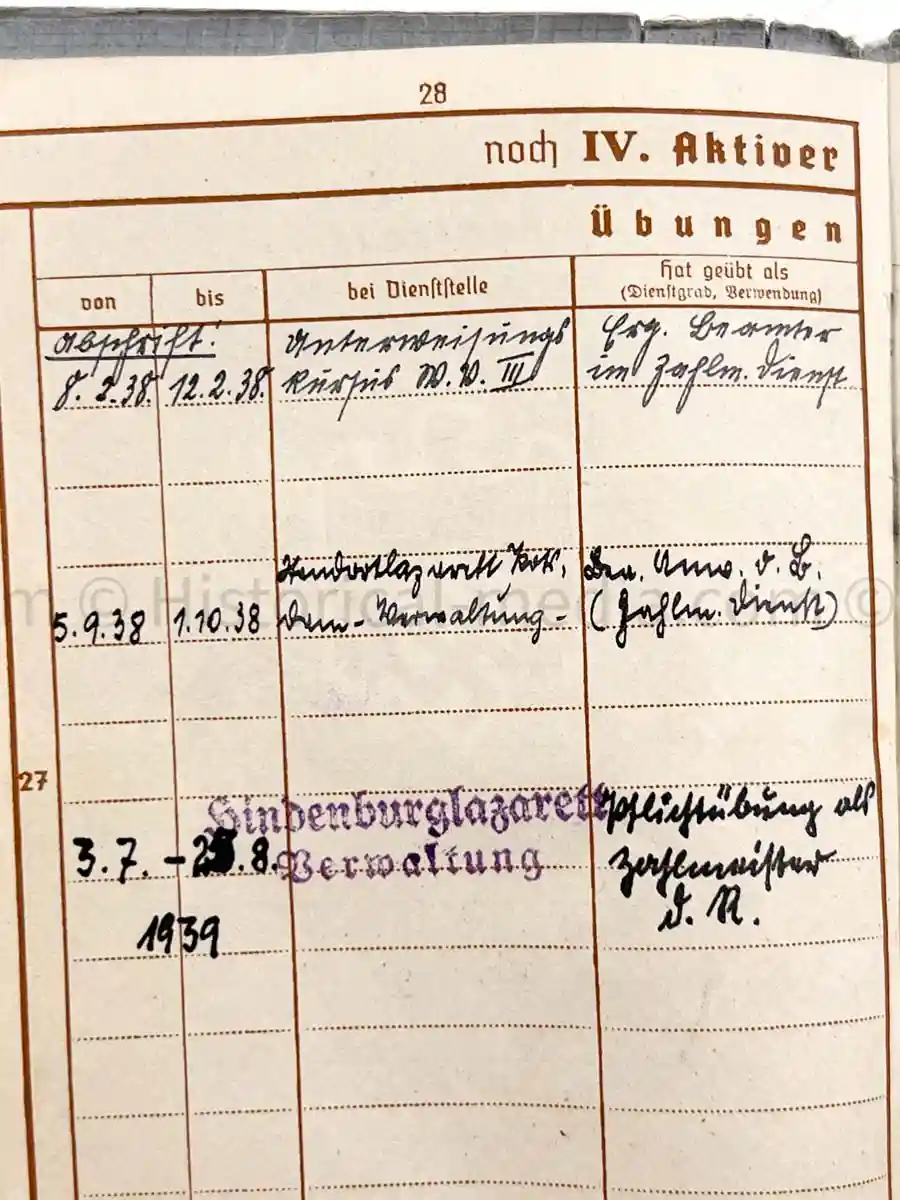 28
noch IV. Aktiver
Übungen
von
bis
bei Dienststelle
Hat geübt als
(Dienstgrad, Verwendung)
Abschrift:
8.2.38.
12.2.38.
Unterweisungs
kursus W.V. III
Erg. Beamter
im Zahlm. Dienst
m © Historical-media.com ©
5.9.38
1.10.38
Standortlazarett Pots,
dam - Verwaltung -
Bea. Anw. d. B.
(Zahlm. Dienst)
27
3.7. - 8.
1939
Hindenburglazarett
Verwaltung
Pflichtübung als
Zahlmeister
d. R.